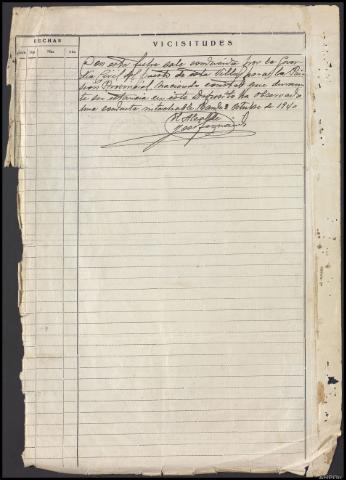 FECHAS
VICISITUDES
Día
Mes
Año
Con esta fecha sale conducida por la Guar-
dia Civil del puesto de esta Villa, para la Pri-
sion Provincial, haciendo constar que duran-
te su estancia en este Deposito ha observado
una conducta intachable. 8 Octubre de 1940
El Alcalde